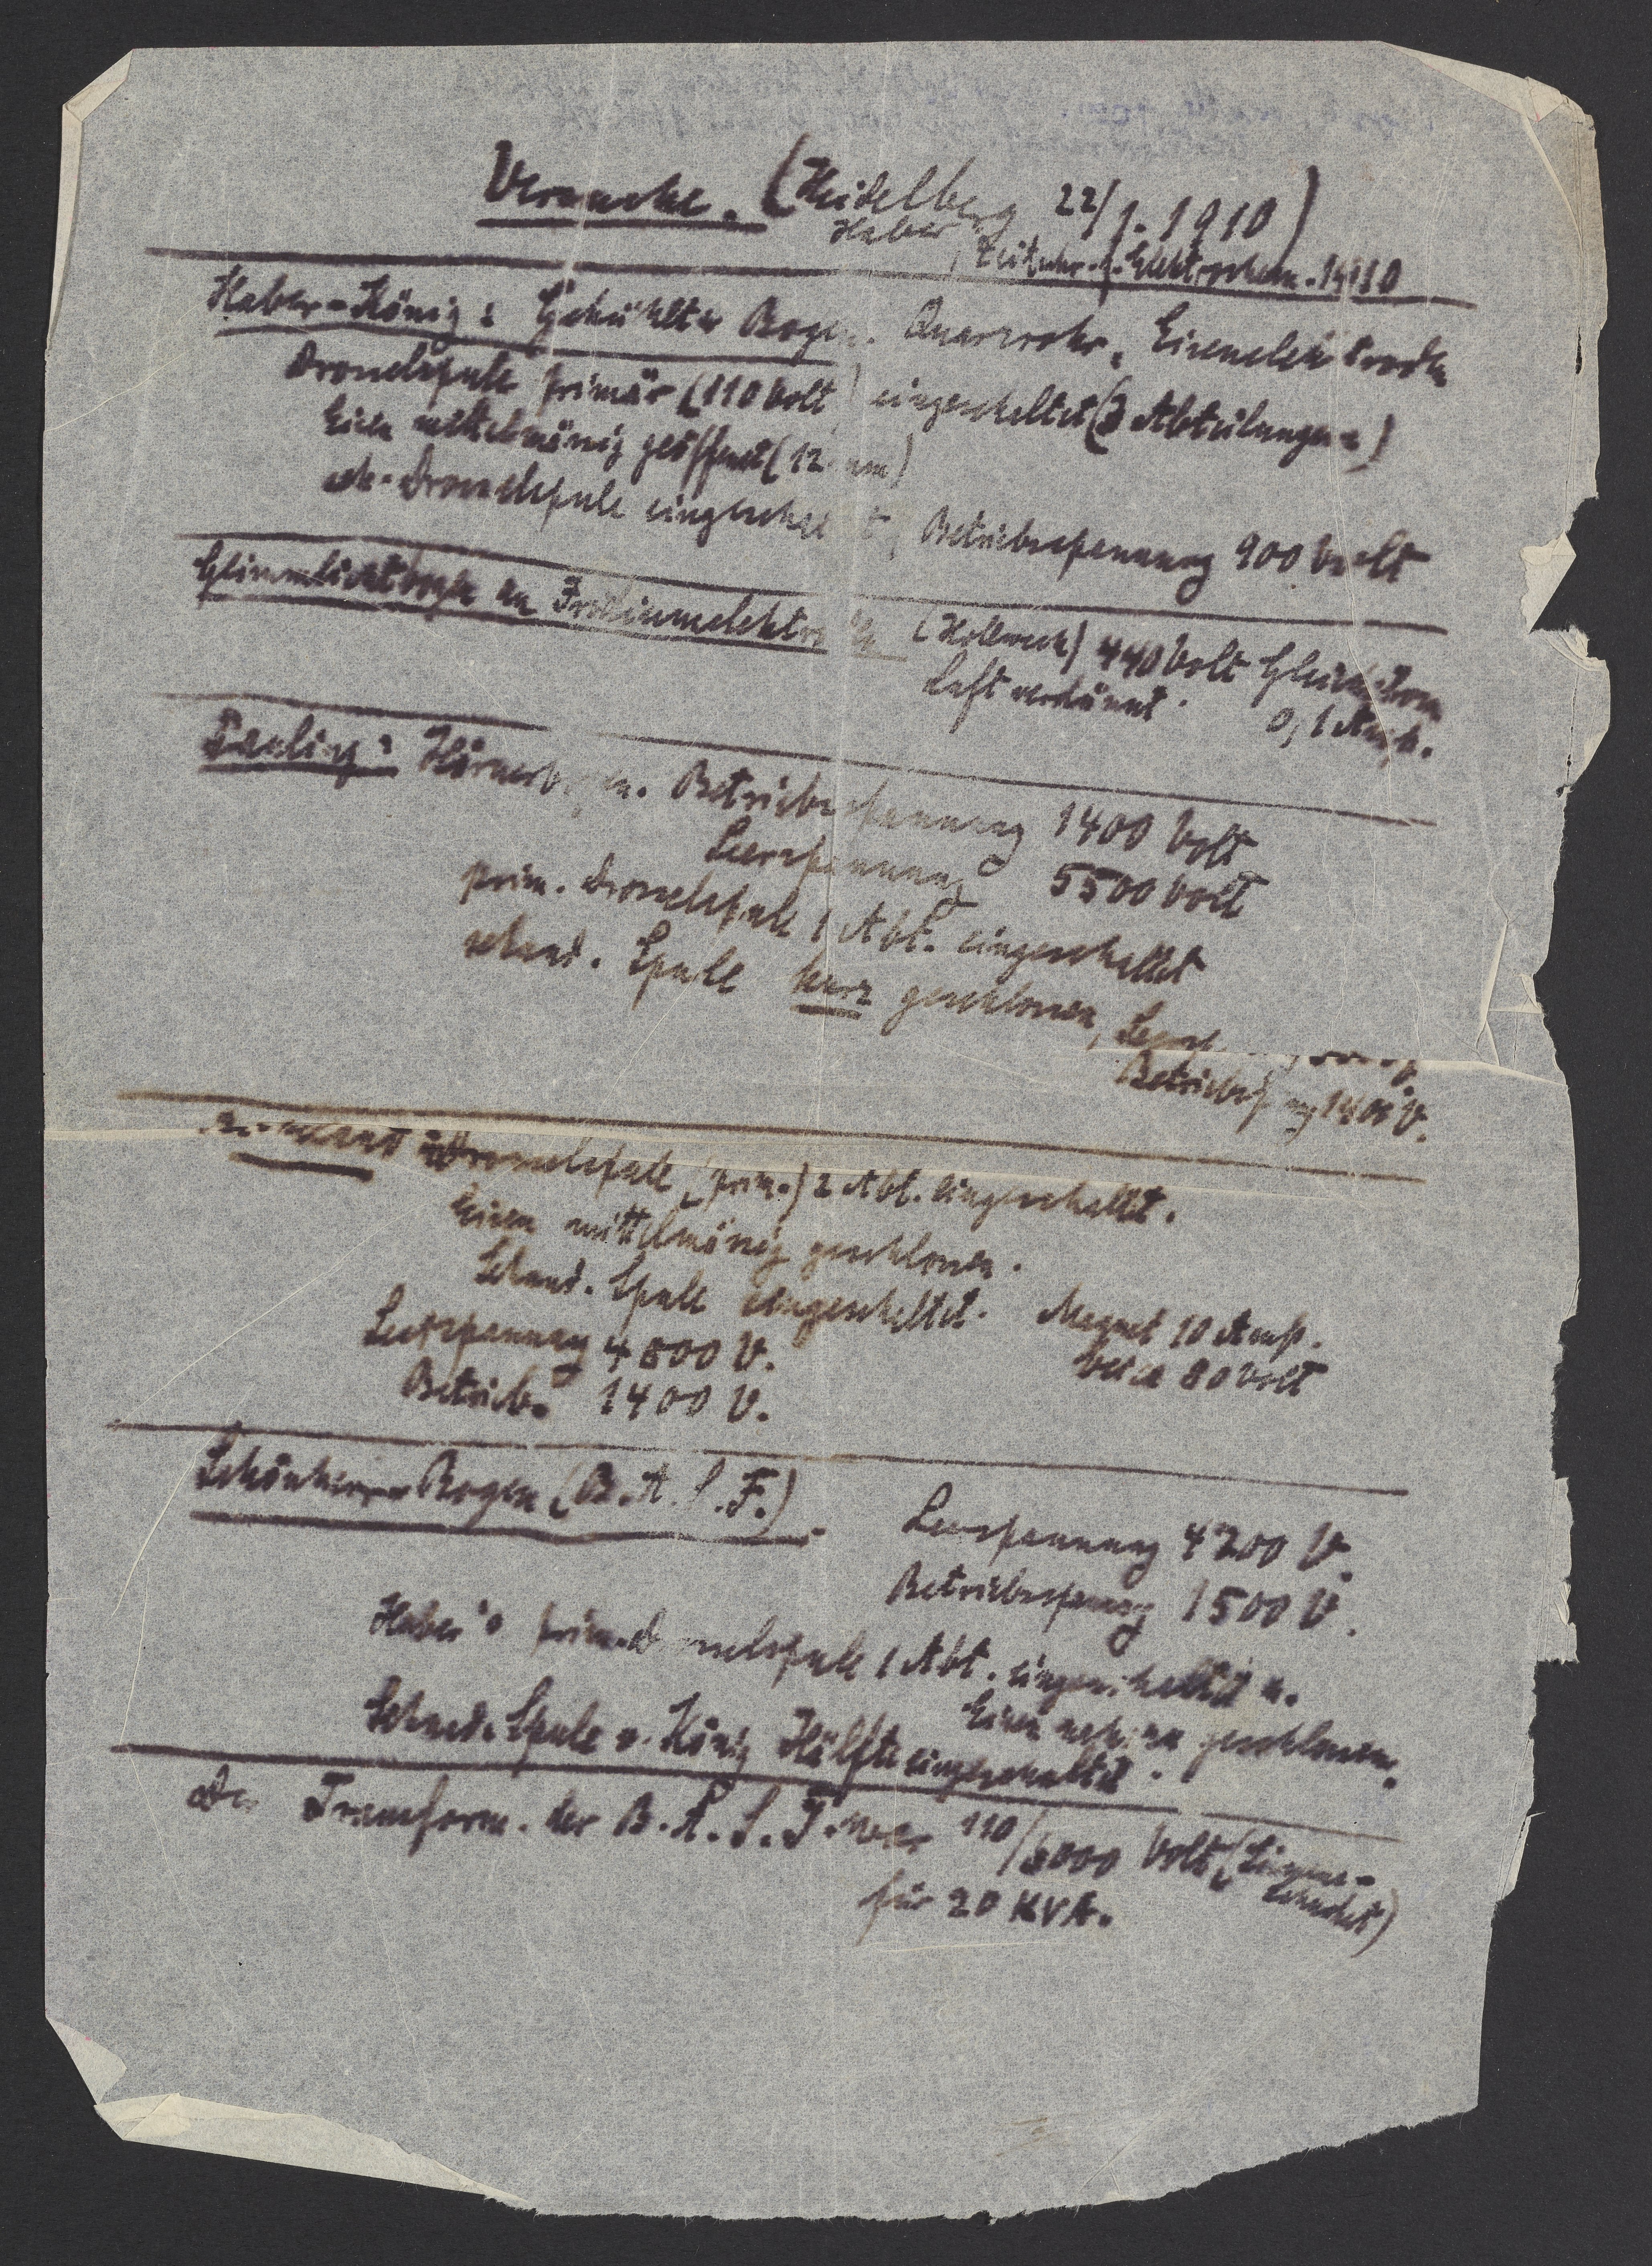 Versuche. (Heidelberg 22/1. 1910)
Haber, Zeitschr. f. Elektrochem. 1910
Haber-König: Gekühlter Bogen. Quarzrohr, Eisenelektroden
Drosselspule primär (110 Volt) eingeschaltet (3 Abteilungen)
Eisen mittelmässig geöffnet (12 mm)
Drosselspule eingeschaltet, Betriebsspannung 900 Volt
Glimmlichtbogen an Iridiumelektroden (Hollweck) 440 Volt Gleichstrom
Luft verdünnt. 0,1 Amp.
Pauling: Hörnerbogen. Betriebsspannung 1400 Volt
Leerspannung 5500 Volt
prim. Drosselspule 1 Abt. eingeschaltet
sekund. Spule kurz geschlossen,
Betriebsspg 1400 V.
Drosselspule (prim.) 2 Abt. eingeschaltet.
Eisen mittelmässig geschlossen.
Sekund. Spule eingeschaltet. Magnet 10 Amp.
Leerspannung 4800 V. bei ca 80 Volt
Betriebs" 1400 V.
Schönherr-Bogen (B.A.S.F.). Leerspannung 4200 V.
Betriebsspannung 1500 V.
Haber's prim. Drosselspule 1 Abt. eingeschaltet u.
Eisen geschlossen.
Sekund. Spule v. König Hälfte eingeschaltet.
Der Transform. der B.A.S.F. war 110/5000 Volt (Siemens-
Schuckert)
für 20 KVA.